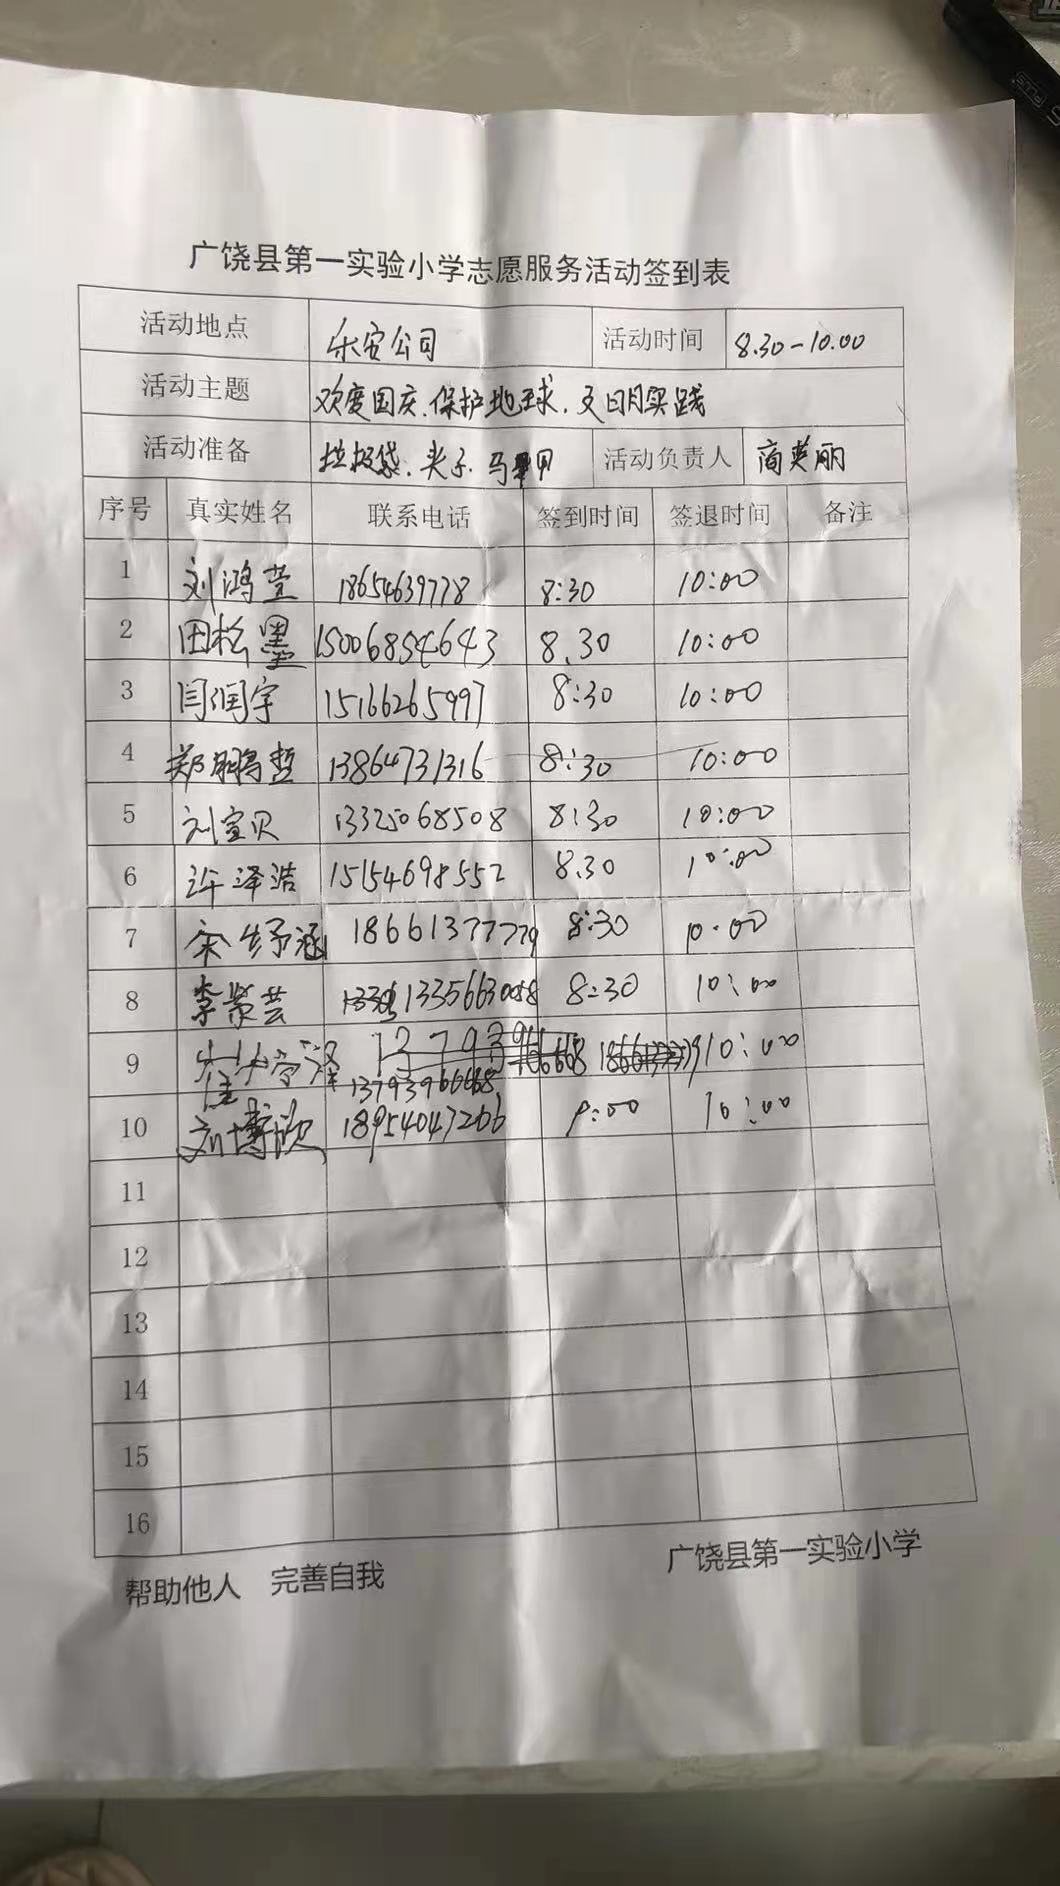 广饶县第一实验小学志愿服务活动签到表
活动地点 乐安公司 活动时间 8.30-10.00
活动主题 欢度国庆.保护地球.文明实践
活动准备 垃圾袋.夹子.马甲 活动负责人 商英丽
序号 真实姓名 联系电话 签到时间 签退时间 备注
1 刘鸿萱 18654639778 8:30 10:00
2 田松墨 15006854643 8.30 10:00
3 闫润宇 15166265997 8:30 10:00
4 郑鹏哲 13864731316 8:30 10:00
5 刘宝贝 13325068508 8:30 10:00
6 许泽浩 15154698552 8.30 10:00
7 宋纾涵 18661377779 8:30 10.00
8 李紫芸 13356630088 8:30 10:00
9 13793966668 10:00
10 刘博欣 18954047266 9:00 10:00
11
12
13
14
15
16
帮助他人 完善自我 广饶县第一实验小学